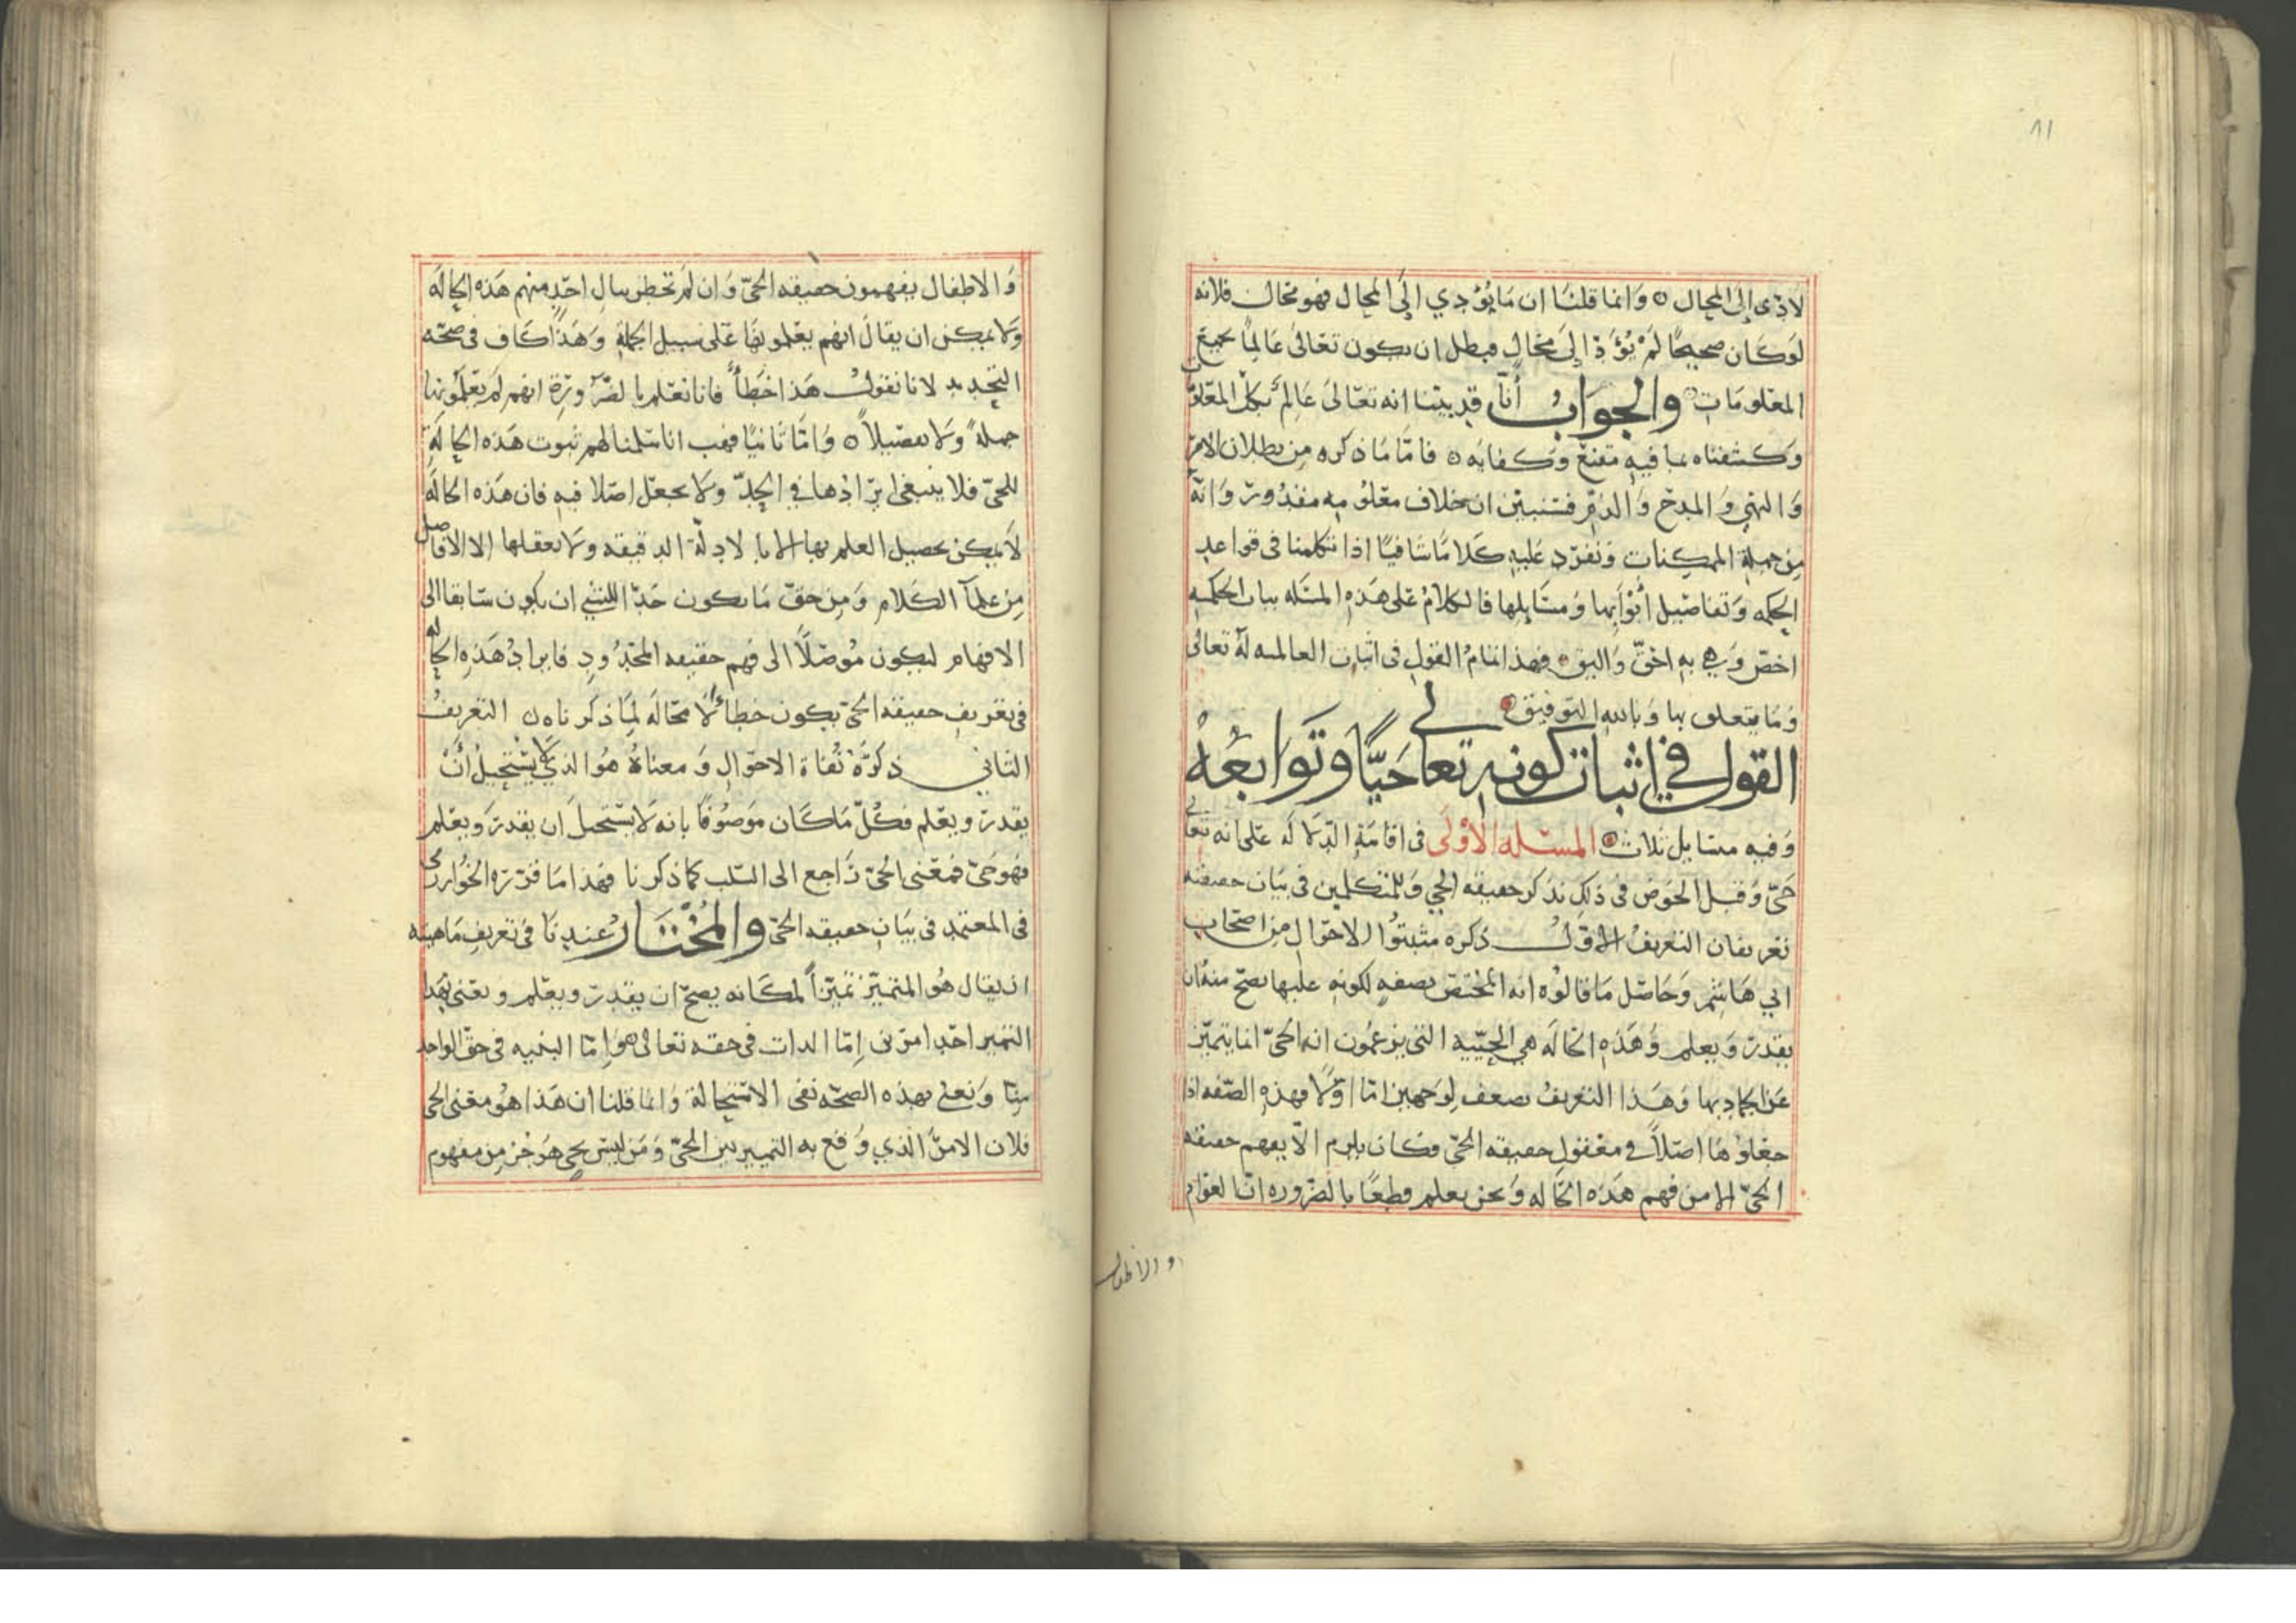 ٨١
لأدى إلى المحال ٥ وَانما قلنَا ان مَا يُؤدي إلَى المحال فهو محال فلانه
لوَكَان صحيحًا لَمْ يُؤدّ إلىَ محَالٍ فبطل ان يكون تعَالىَ عَالِمًا بجميعَ
المعَلومَات ٥ والجوَابُ أنّا قد بيّنا انه تعَالىَ عَالِمٌ بكلّ المعَلومَات
وَكشفناه بما فيهِ مقنعٌ وكفايَه ٥ فامّا مَا ذكره مِن بطلان الامر
وَالنهيِ وَالمدحِ وَالذمِّ فسَنبيّن ان خلاف معَلومِه مقدُورٌ وَانهُ
مِن جملةِ الممكنات وَنفرد عَليهِ كَلامًا شافيًا اذا تكلمنا فى قواعدِ
الحِكمه وَتفاصِيل أبْوَابِها وَمسَايِلها فالكلامُ عَلى هَذهِ المسَله بباب الحكمهِ
اخصّ وَهي بهِ احَقّ وَاليق ٥ فهذا تمَامُ القولِ فى اثبات العالميه لهُ تعَالى
وَمَا يتعلق بها وَبالله التوفيق ٥
القول في اثبات كونهِ تعالى حَيًّا وتَوابعُهُ
وَفيه مسَايل ثلاث ٥ المسئله الأوْلَى فى اقامَةِ الدّلالَه عَلى انه تعَالى
حَيّ وَقبل الخوَض في ذلِكَ نذكر حقيقه الحي وَللمتكلمين فى بيَان حقيقته
تعَريفان التعَريفُ الأوّلُ ذكره مثبتوُا الاحوَالِ مِن اصحَاب
ابي هَاشم وَحَاصل مَا قالوُه انه المختصّ بصفهٍ لكونهِ عليها يصحّ منهُ ان
يقدرَ وَيعلم وَهَذهِ الحَالَه هي الحَيّيه التي يزعمُون انه الحيّ انما يتميّز
عَن الجمادِ بها وَهَذا التعَريفُ يضعف لِوَجهين امّا اوّلًا فهذهِ الصّفه اذا
جعَلوُهَا اصْلًا في معَقولِ حقيقه الحيّ فكان يلزم الّا يفهم حقيقه
الحيّ الا من فهم هَذه الحَاله وَنحن نعلم قطعًا بالضّروره انّ العَوَامَ
والاطفال
وَالاطفال يفهمون حقيقه الحَيّ وَان لم تخطر ببالِ احَدٍ منهم هَذه الحالَه
وَلا يمكن ان يقالَ انهم يعَلمونهَا عَلى سبيل الجملهِ وَهَذا كَاف فى صحّه
التحديد لانا نقولُ هَذا خَطأٌ فانا نعَلم بالضّرورةِ انهم لم يعَلموُنها
جملةً وَلا تفصيلًا ٥ وَامّا ثانيًا فهب انا سَلمنا لهم ثبوت هَذه الحَالَةِ
للحيّ فلا ينبغى ايرَادها في الحدّ وَلا يجعَل اصَلا فيهِ فان هَذه الحَالَه
لاَ يمكن تحصيل العلم بها الا بالادلّة الدقيقه وَلا يعقلها الا الافَاضل
مِن علمآ الكَلام وَمِن حقّ مَا يكون حَدّا للشي ان يكون سَابقا الى
الافهام ليكون مُوصّلًا الى فهم حقيقه المحدُودِ فايرادُ هَذهِ الحاله
فى تعَريفِ حقيقه الحيّ يكون خطاءً لا محَالَه لِمَا ذكرناه ٥ التعَريفُ
الثاني ذكرَهُ نُفاة الاحوَالِ وَمعناهُ هُوَ الذي لا يسْتحيلُ أنْ
يقدرَ ويعَلم فكُلّ مَا كَان مَوصُوفًا بانه لا يسَتحيل أن يقدرَ وَيعَلم
فهو حَيّ فمَعَنى الحيّ رَاجع الى السّلب كما ذكرنا فهَذا مَا قرّره الخُوَارزمى
فى المعتمدِ فى بيَان حقيقه الحيّ والمُخْتَارُ عندنَا فى تعَريفِ مَاهيته
ان يقال هُو المتميّز تميّزًا لمكَانه يصحّ ان يقدرَ ويعَلم ونعَنى بهذا
التميز احَد امرَين إمّا الذات فى حقه تعَالى هو وَإمّا البنيه فى حقّ الواحد
مِنا وَنعني بهذه الصحّه نفى الاسَتحالة وَانما قلنا ان هَذا هُو معَنى الحي
فلان الامرَ الَذي وَقع به التمييز بَين الحَيّ وَمَن ليسَ بحيٍ هَو جُز مِن مفهوم